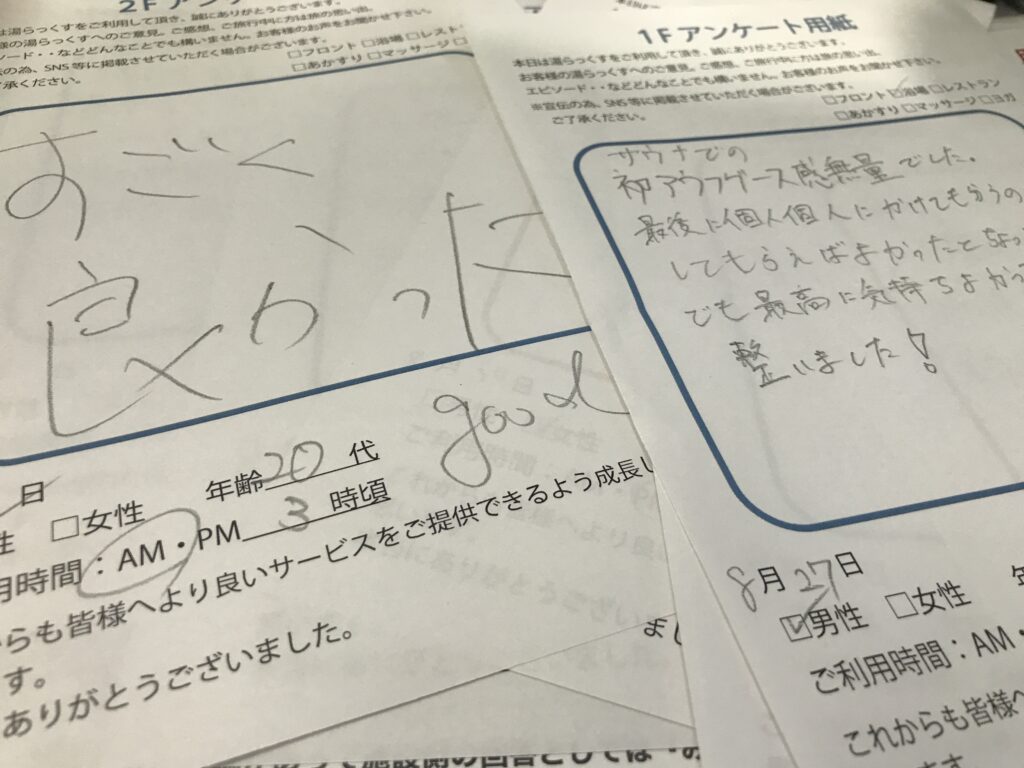 2F アンケ
は湯らっくすをご利用して頂き、誠にありがとうござい
様の湯らっくすへのご意見。ご感想、ご旅行中に方は旅の思い出、
ソード・・などどんなことでも構いません。お客様のお声をお聞かせ下さい。
の為、SNS等に掲載させていただく場合がございます。
了承ください。
□フロント □浴場 □レスト
□あかすり □マッサージ □
すごく
良かった
good
日
年齢 20 代
性 □女性
用時間：AM・PM 3 時頃
からも皆様へより良いサービスをご提供できるよう成長し
す。
ありがとうございました。
1F アンケート用紙
本日は湯らっくすをご利用して頂き、誠にありがとうございます。
お客様の湯らっくすへのご意見。ご感想、ご旅行中に方は旅の思い出、
エピソード・・などどんなことでも構いません。お客様のお声をお聞かせ下さい。
※宣伝の為、SNS等に掲載させていただく場合がございます。
ご了承ください。
□フロント □浴場 □レストラン
□あかすり □マッサージ □ヨガ
サウナでの
初アウフグース感無量でした。
最後に個人個人にかけてもらうの
してもらえばよかったとちょっ
でも最高に気持ちよかっ
整いました！
8月27日
☑男性 □女性
ご利用時間：AM・
これからも皆様へ
ます。